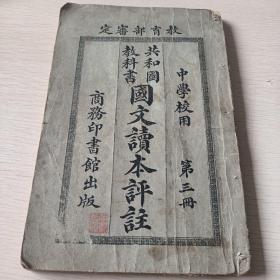 教育部審定
中學校用　第三冊
共和國
教科書
國文讀本評註
商務印書館出版